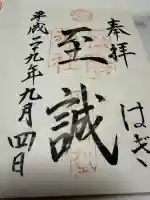 奉拝
はぎ
至誠
平成二九年九月四日